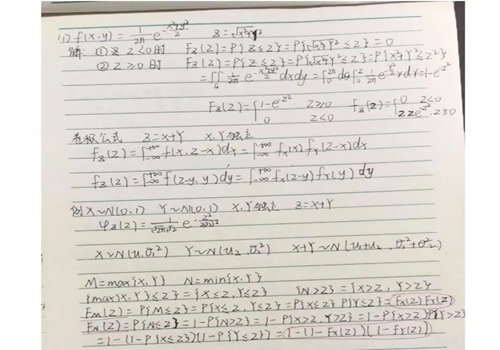 (1) f(x,y)=1/2π e^-(x²+y²)/2   Z=√x²+y²
解: ①当 Z<0时 F_Z(Z)=P{Z≤Z}=P{√x²+y²≤Z}=0
②Z≥0时 F_Z(Z)=P{Z≤Z}=P{√x²+y²≤Z}=P{x²+y²≤Z²}
F_Z(Z)={1-e^-Z² Z≥0 f_Z(Z)={0 Z<0
0 Z<0 2Ze^-Z² Z≥0
卷积公式 Z=X+Y X,Y独立
f_Z(Z)=∫_-∞^+∞ f(x,Z-x)dx=∫_-∞^+∞ f_X(x)f_Y(Z-x)dx
f_Z(Z)=∫_-∞^+∞ f(Z-y,y)dy=∫_-∞^+∞ f_X(Z-y)f_Y(y)dy
例 X~N(0,1) Y~N(0,1) X,Y独立 Z=X+Y
X~N(u₁,σ₁²) Y~N(u₂,σ₂²) X+Y~N(u₁+u₂,σ₁²+σ₂²)
M=max{X,Y} N=min{X,Y}
{max(X,Y)≤Z}={X≤Z,Y≤Z} {N>Z}={X>Z,Y>Z}
F_M(Z)=P{M≤Z}=P{X≤Z,Y≤Z}=P{X≤Z}P{Y≤Z}=F_X(Z)F_Y(Z)
F_N(Z)=P{N≤Z}=1-P{N>Z}=1-P{X>Z,Y>Z}=1-P{X>Z}P{Y>Z}
=1-(1-P{X≤Z})(1-P{Y≤Z})=1-(1-F_X(Z))(1-F_Y(Z))